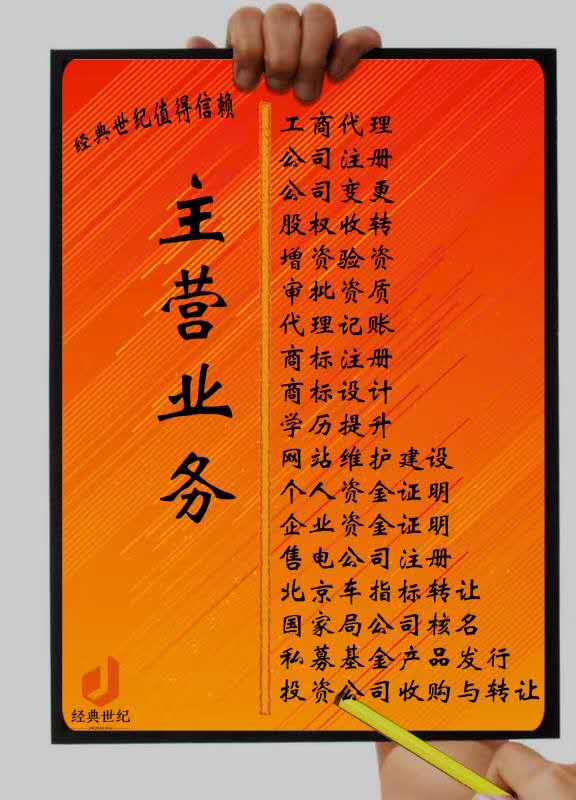 经典世纪值得信赖
主营业务
工商代理
公司注册
公司变更
股权收转
增资验资
审批资质
代理记账
商标注册
商标设计
学历提升
网站维护建设
个人资金证明
企业资金证明
售电公司注册
北京车指标转让
国家局公司核名
私募基金产品发行
投资公司收购与转让
经典世纪